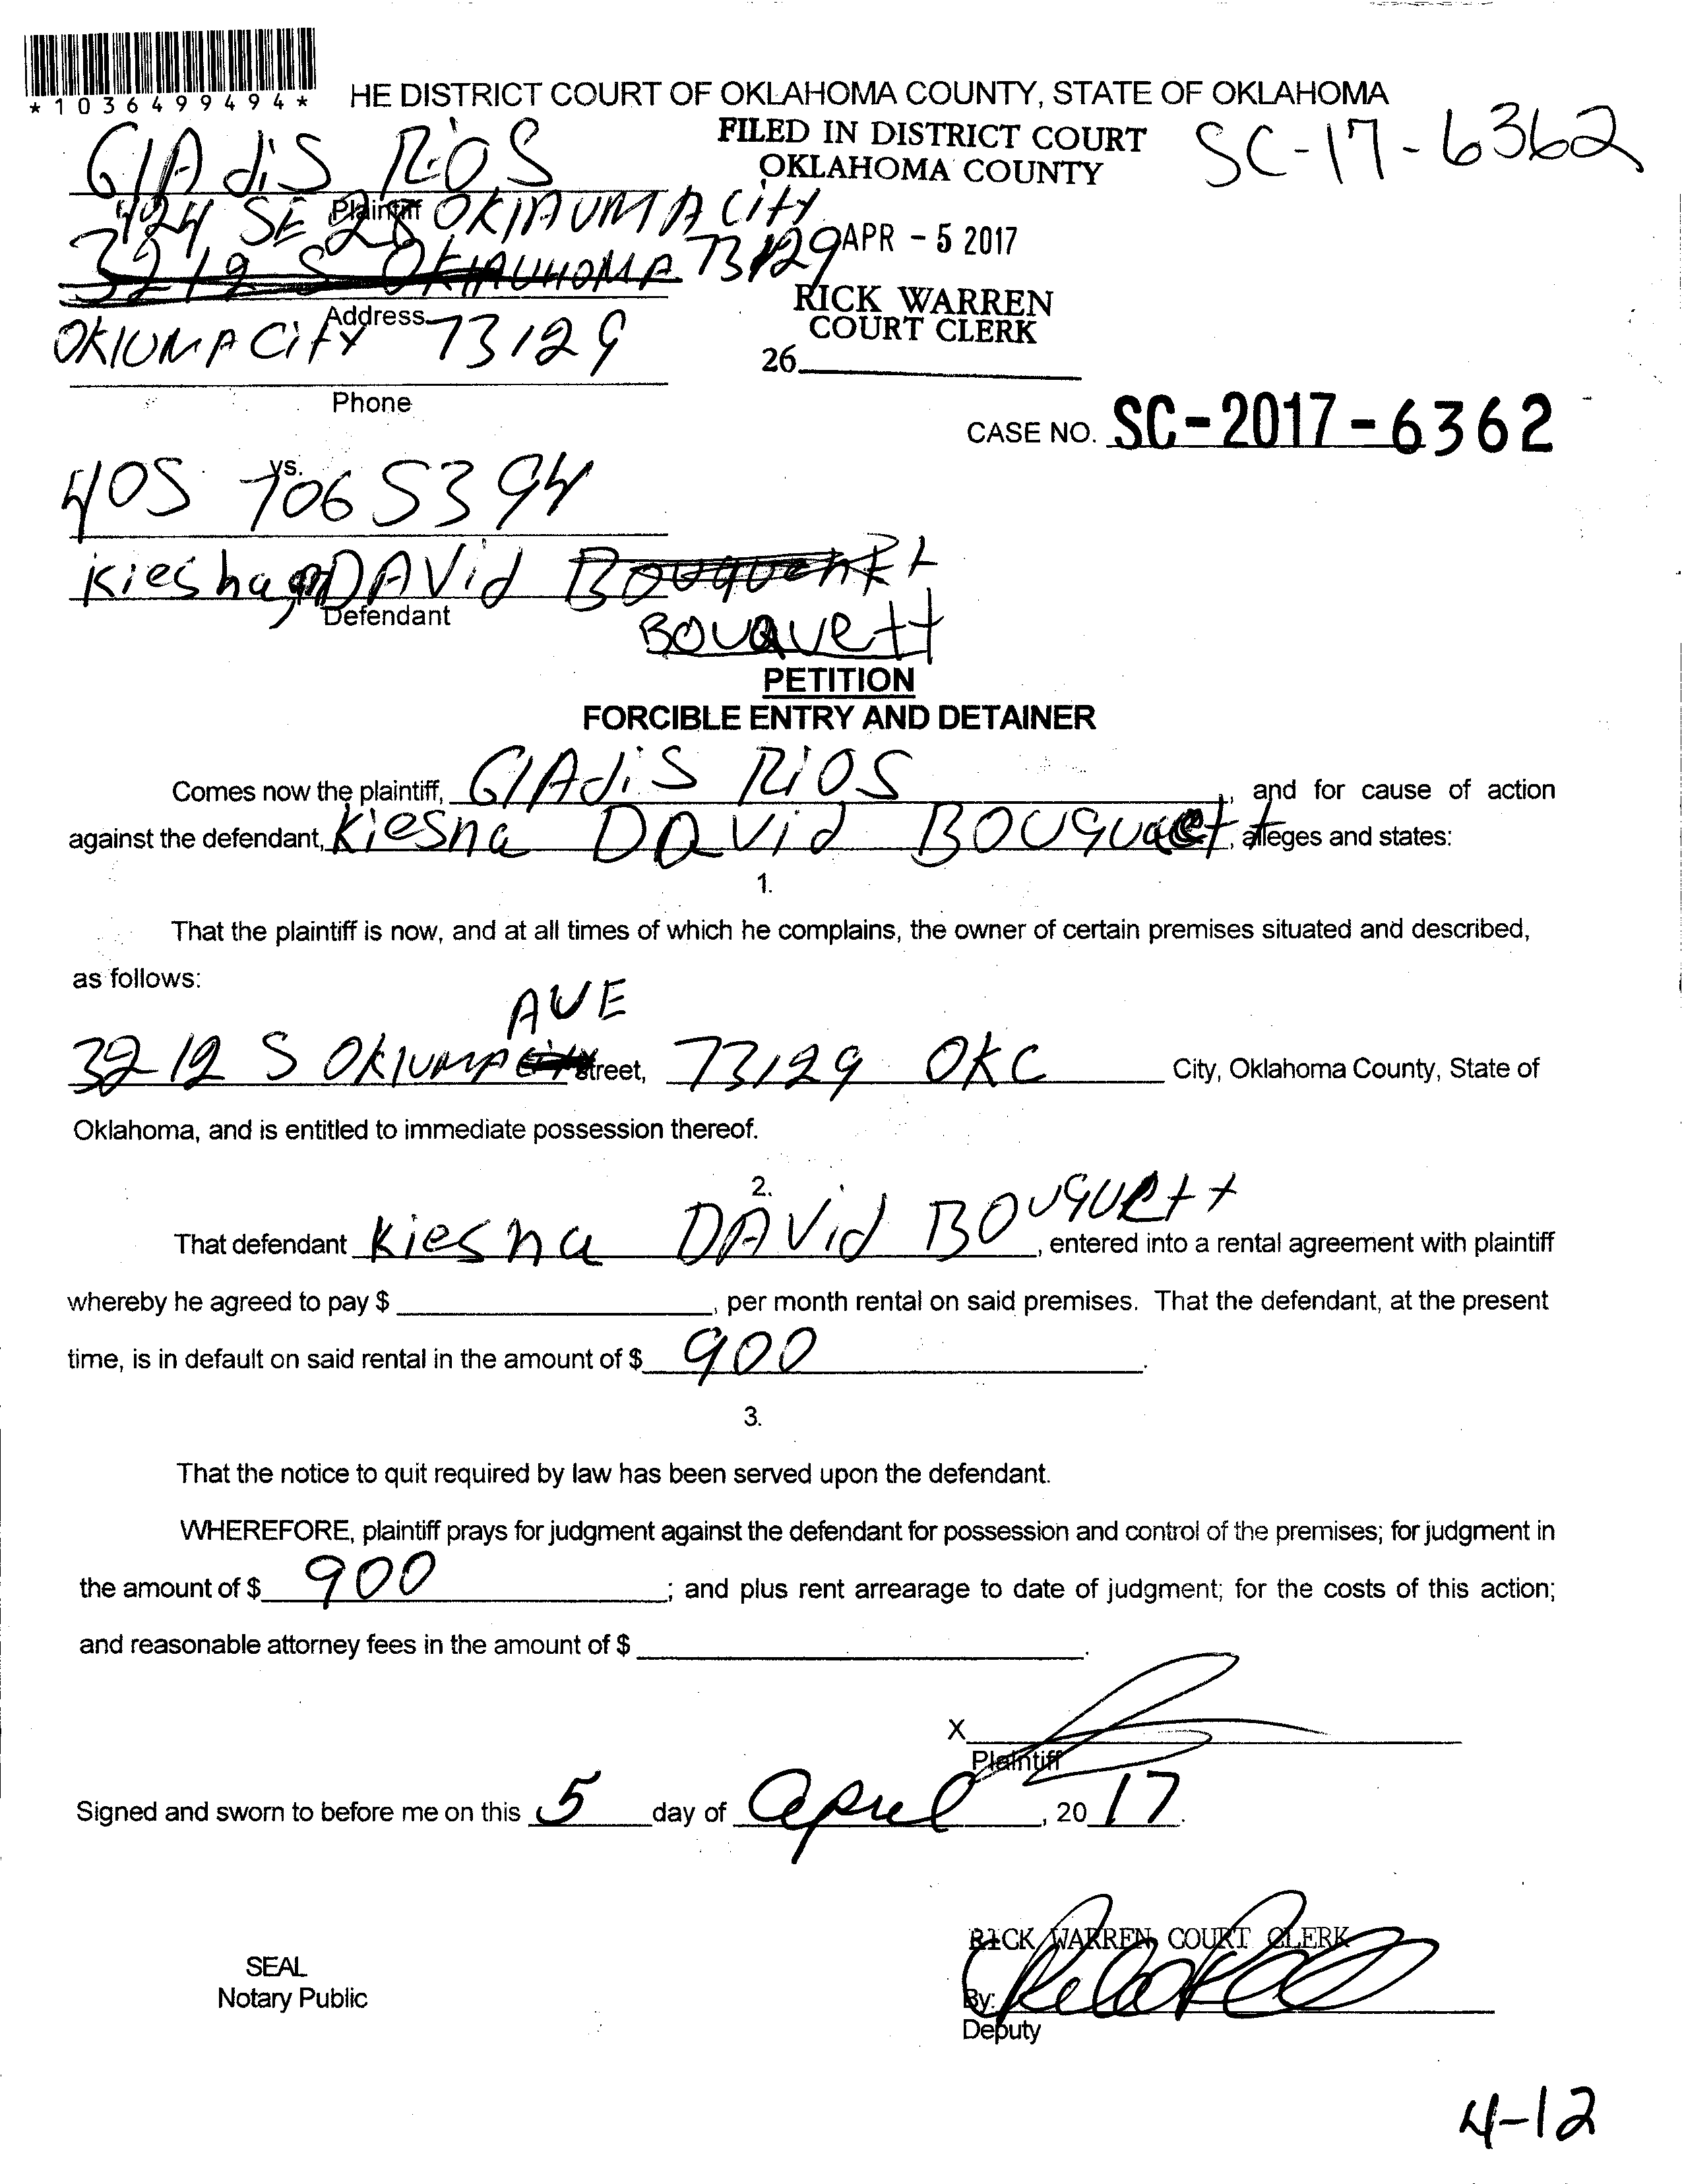 *1036499494*
HE DISTRICT COURT OF OKLAHOMA COUNTY, STATE OF OKLAHOMA
FILED IN DISTRICT COURT
OKLAHOMA COUNTY
SC-17-6362
GlAdiS RiOS
Plaintiff
424 SE 28 OKlAUMA City
73129
APR - 5 2017
3212 S OKlAUHOMA
RICK WARREN
COURT CLERK
Address
OKlUMA City 73129
26
Phone
CASE NO. SC-2017-6362
vs.
405 7065394
Kiesha DAVid
Defendant
BOUQUett
PETITION
FORCIBLE ENTRY AND DETAINER
Comes now the plaintiff, GlAdiS RiOS, and for cause of action
against the defendant, Kiesha DAVid BOUQUett, alleges and states:
1.
That the plaintiff is now, and at all times of which he complains, the owner of certain premises situated and described,
as follows:
AVE
3212 S OKlUMA Street, 73129 OKC City, Oklahoma County, State of
Oklahoma, and is entitled to immediate possession thereof.
2.
That defendant Kiesha DAVid BOUQUett, entered into a rental agreement with plaintiff
whereby he agreed to pay $ , per month rental on said premises. That the defendant, at the present
time, is in default on said rental in the amount of $ 900.
3.
That the notice to quit required by law has been served upon the defendant.
WHEREFORE, plaintiff prays for judgment against the defendant for possession and control of the premises; for judgment in
the amount of $ 900; and plus rent arrearage to date of judgment; for the costs of this action;
and reasonable attorney fees in the amount of $ .
X
Plaintiff
Signed and sworn to before me on this 5 day of April, 2017.
RICK WARREN COURT CLERK
SEAL
Notary Public
By:
Deputy
4-12